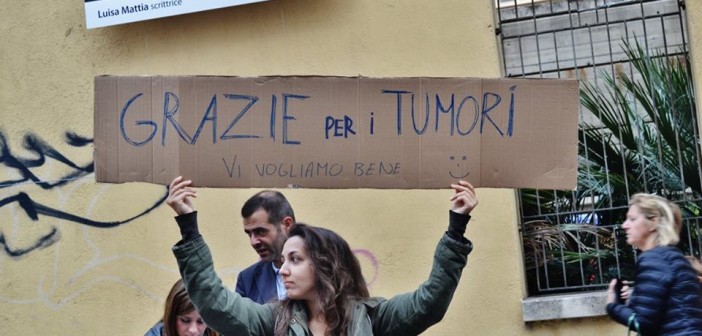 Luisa Mattia scrittrice
GRAZIE PER i TUMORi
VI VOGLIAMO BENE :)